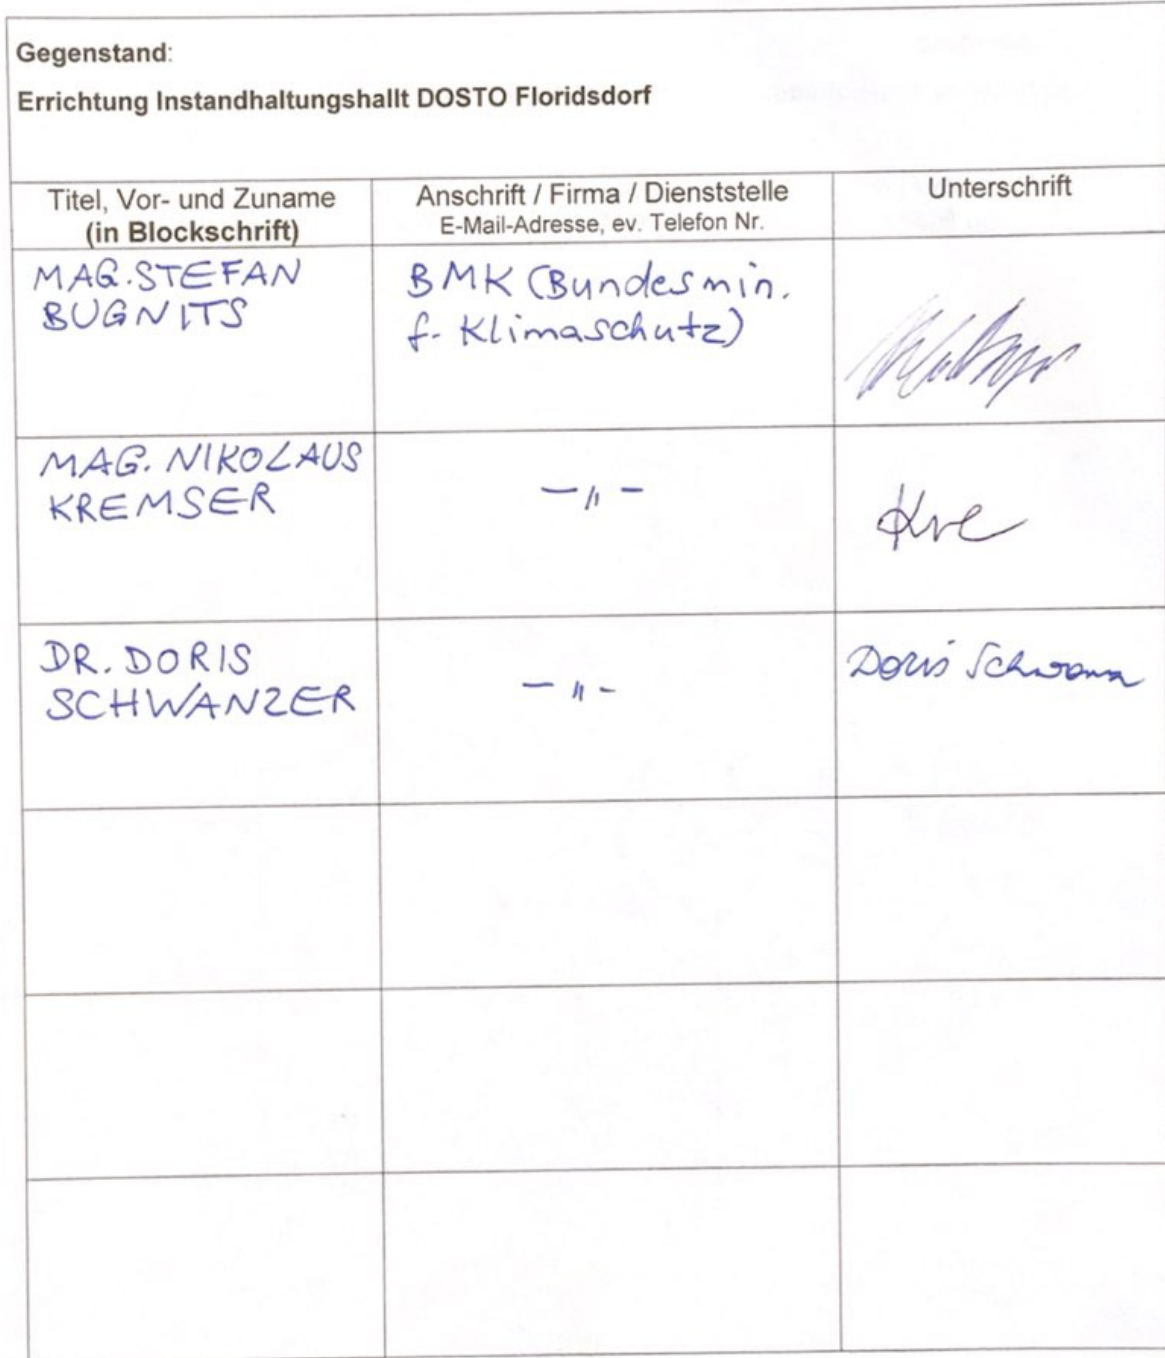 Gegenstand:
Errichtung Instandhaltungshallt DOSTO Floridsdorf
Titel, Vor- und Zuname
(in Blockschrift)
Anschrift / Firma / Dienststelle
E-Mail-Adresse, ev. Telefon Nr.
Unterschrift
MAG. STEFAN
BUGNITS
BMK (Bundesmin.
f. Klimaschutz)
MAG. NIKOLAUS
KREMSER
– " –
Kre
DR. DORIS
SCHWANZER
– " –
Doris